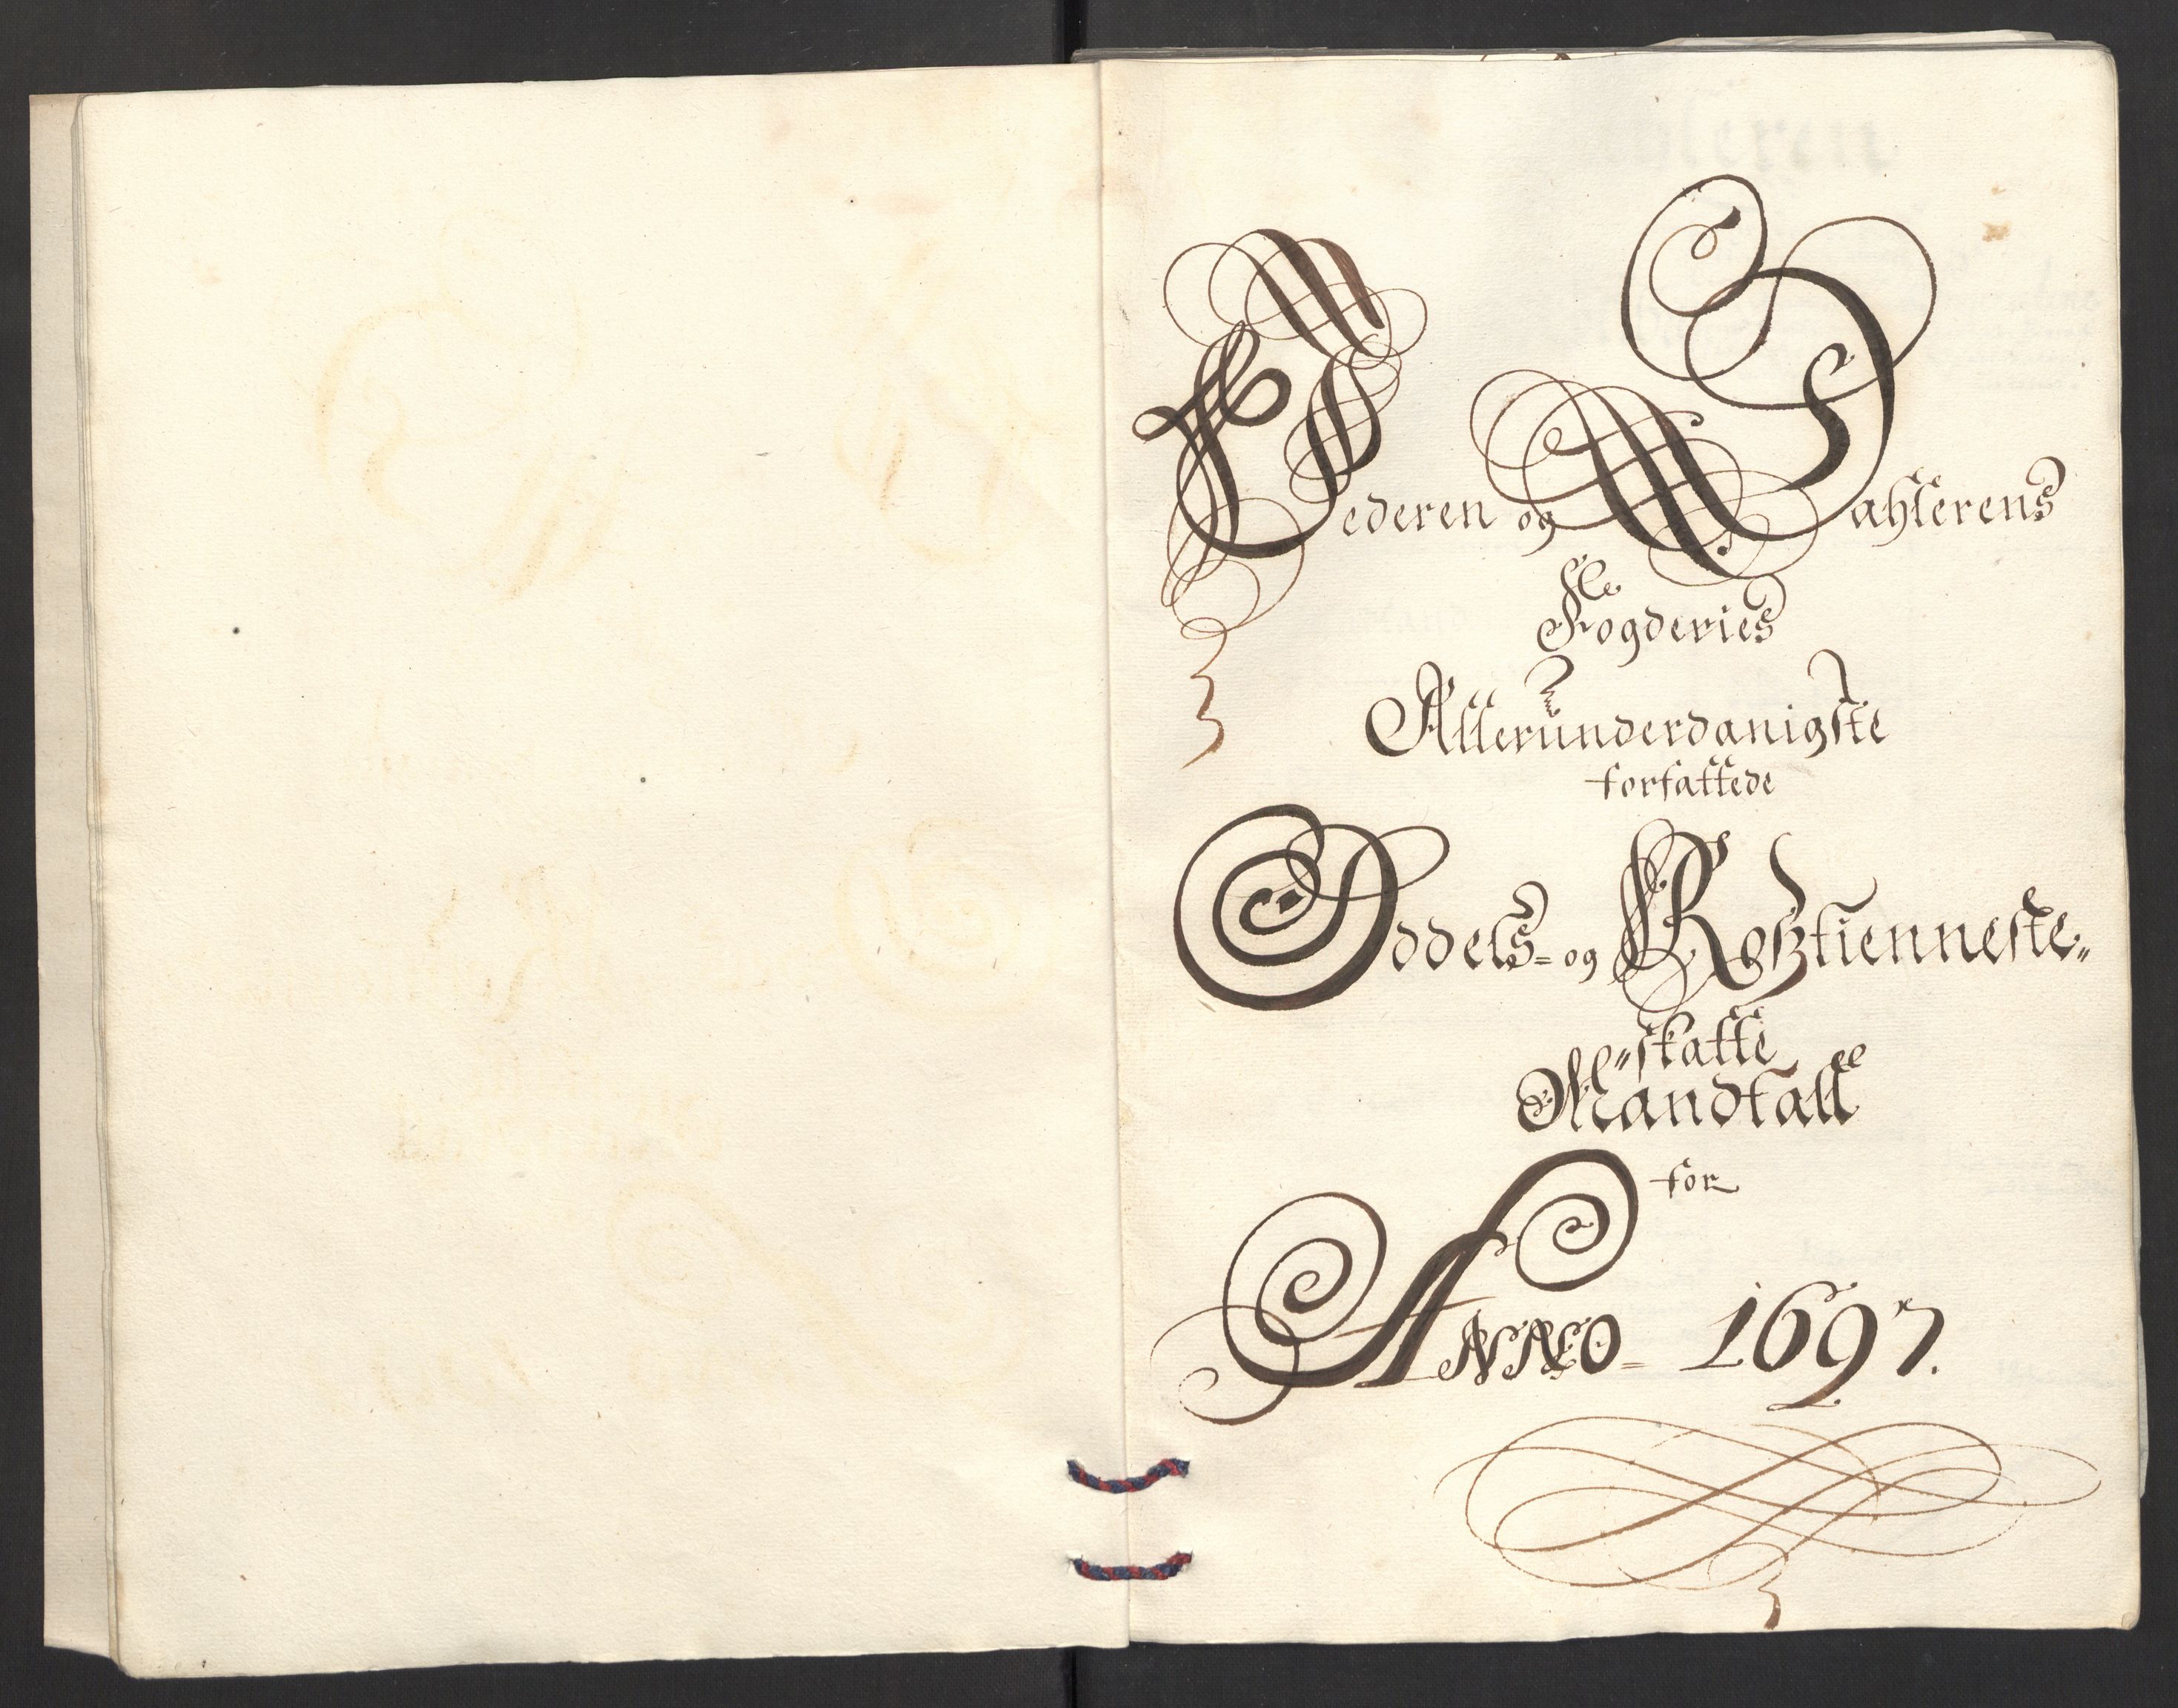 Jederen og Dahlerens
Fogderies
Allerunderdanigste
forfattede
Oddels= og Rosztienneste„
„skatte
Mandtall
for
ANNO= 1697.